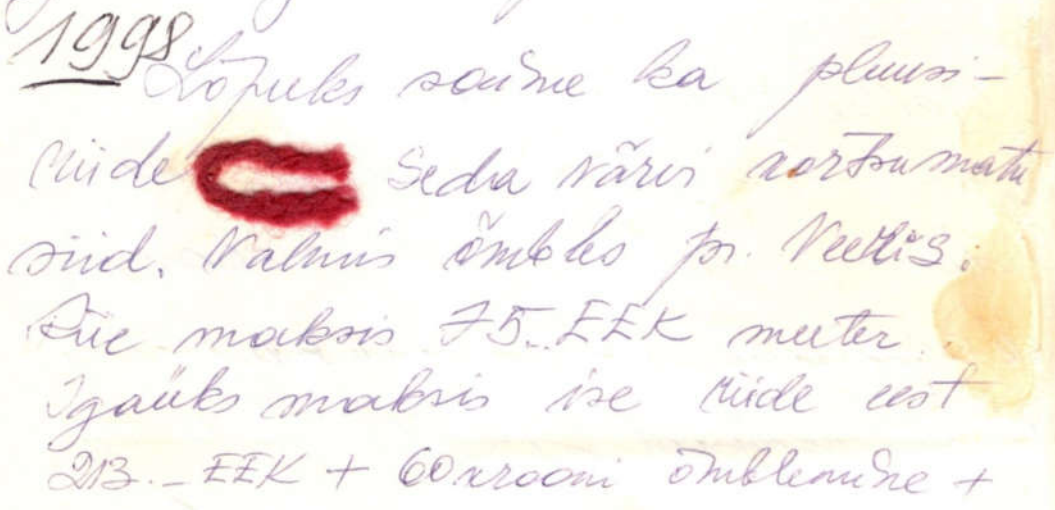 1998
Lõpuks saime ka pluusi-
riide Seda värvi kortsumatu
siid. Valmis õmbles pr.
Riie maksis 75.- EEK meeter.
Igaüks maksis ise riide eest
213.- EEK + 60 krooni õmblemine +